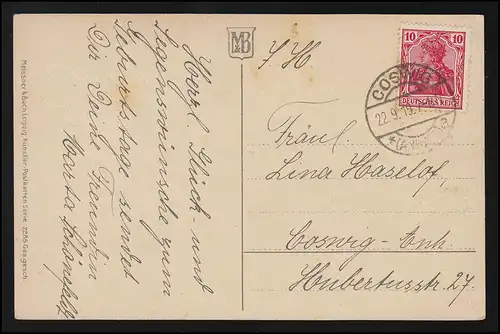 Herzl. Glück- und
Segenswünsche zum
Geburtstage sendet
Dir Deine Freundin
Martha
Meissner & Buch, Leipzig. Künstler-Postkarten Serie
Ges. gesch.
MB
10 10
DEUTSCHES REICH
COSWIG
22.9.19
Fräul.
Lina Haselof,
Coswig-Anh.
Hubertusstr. 27.